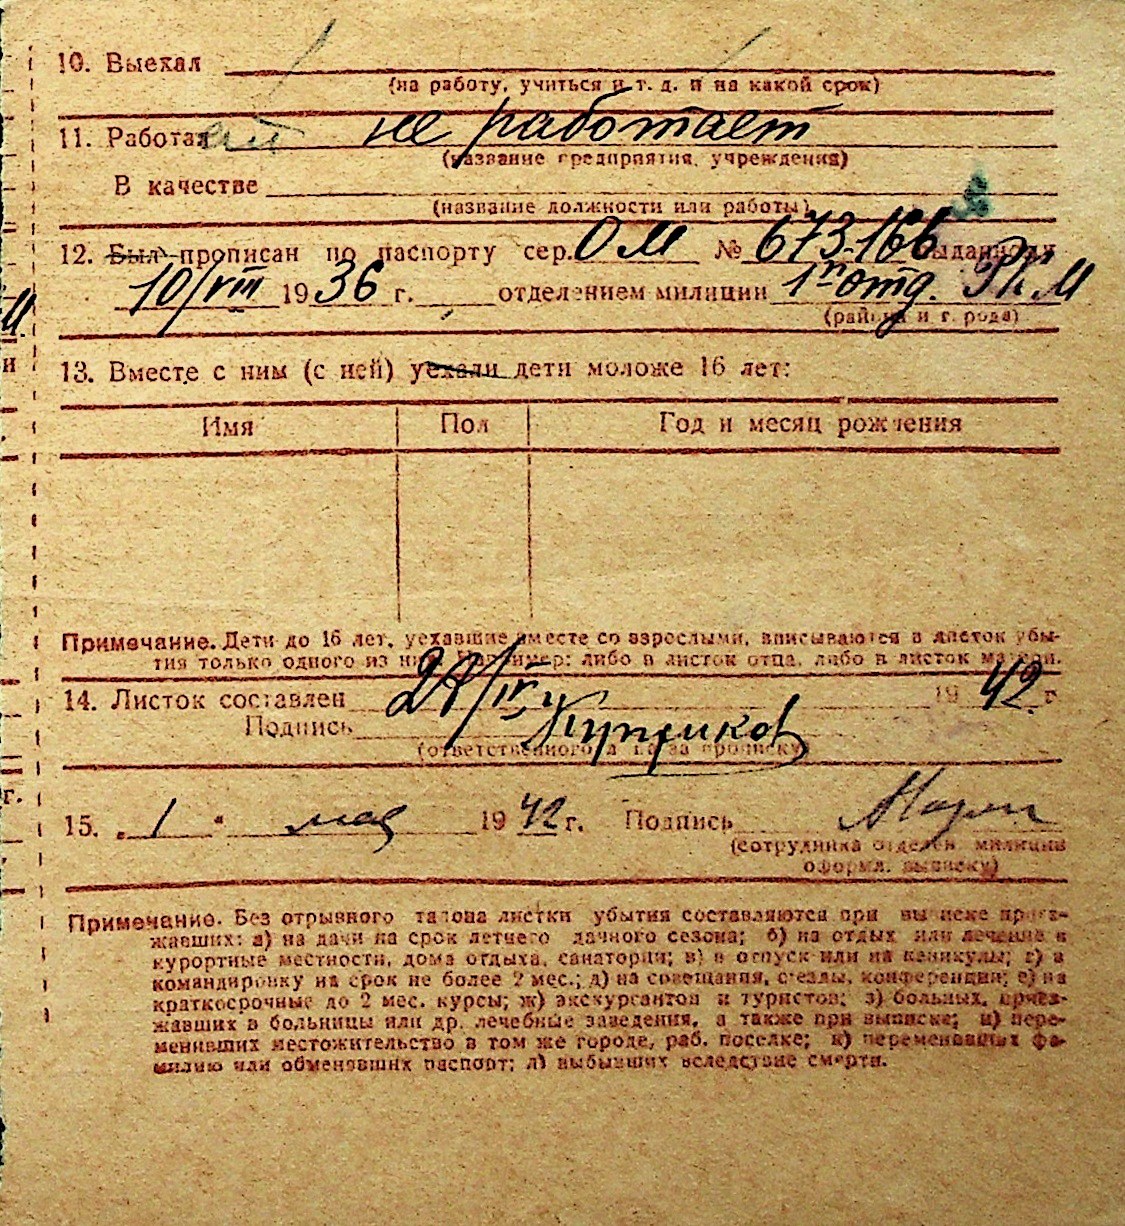 10. Выехал
(на работу, учиться и т. д. и на какой срок)
11. Работает не работает
(название предприятия, учреждения)
В качестве
(название должности или работы)
12. Был прописан по паспорту сер. ОМ № 673166 выданному
10/VIII 1936 г. отделением милиции 1м отд. РКМ
(района и города)
13. Вместе с ним (с ней) уехали дети моложе 16 лет:
Имя Пол Год и месяц рождения
Примечание. Дети до 16 лет, уехавшие вместе со взрослыми, вписываются в листок убы-
тия только одного из них. Например: либо в листок отца, либо в листок матери.
14. Листок составлен 28/IV 1942 г
Подпись
(ответственного за прописку)
15. „1“ мая 1942 г. Подпись
(сотрудника отделен. милиции
оформл. выписку)
Примечание. Без отрывного талона листки убытия составляются при выписке проез-
жавших: а) на дачи на срок летнего дачного сезона; б) на отдых или лечение в
курортные местности, дома отдыха, санатории; в) в отпуск или на каникулы; г) в
командировку на срок не более 2 мес.; д) на совещания, съезды, конференции; е) на
краткосрочные до 2 мес. курсы; ж) экскурсантов и туристов; з) больных, приез-
жавших в больницы или др. лечебные заведения, а также при выписке; и) пере-
менивших местожительство в том же городе, раб. поселке; к) переменивших фа-
милию или обменявших паспорт; л) выбывших вследствие смерти.